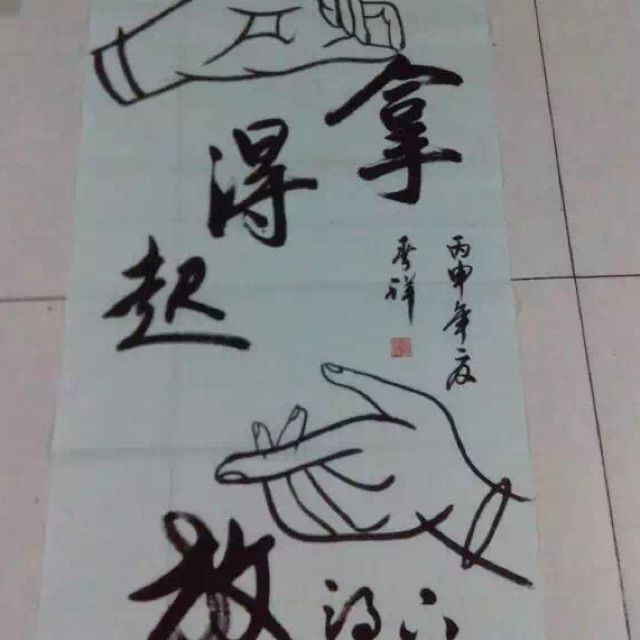 拿得起
放得下
丙申年夏
祥